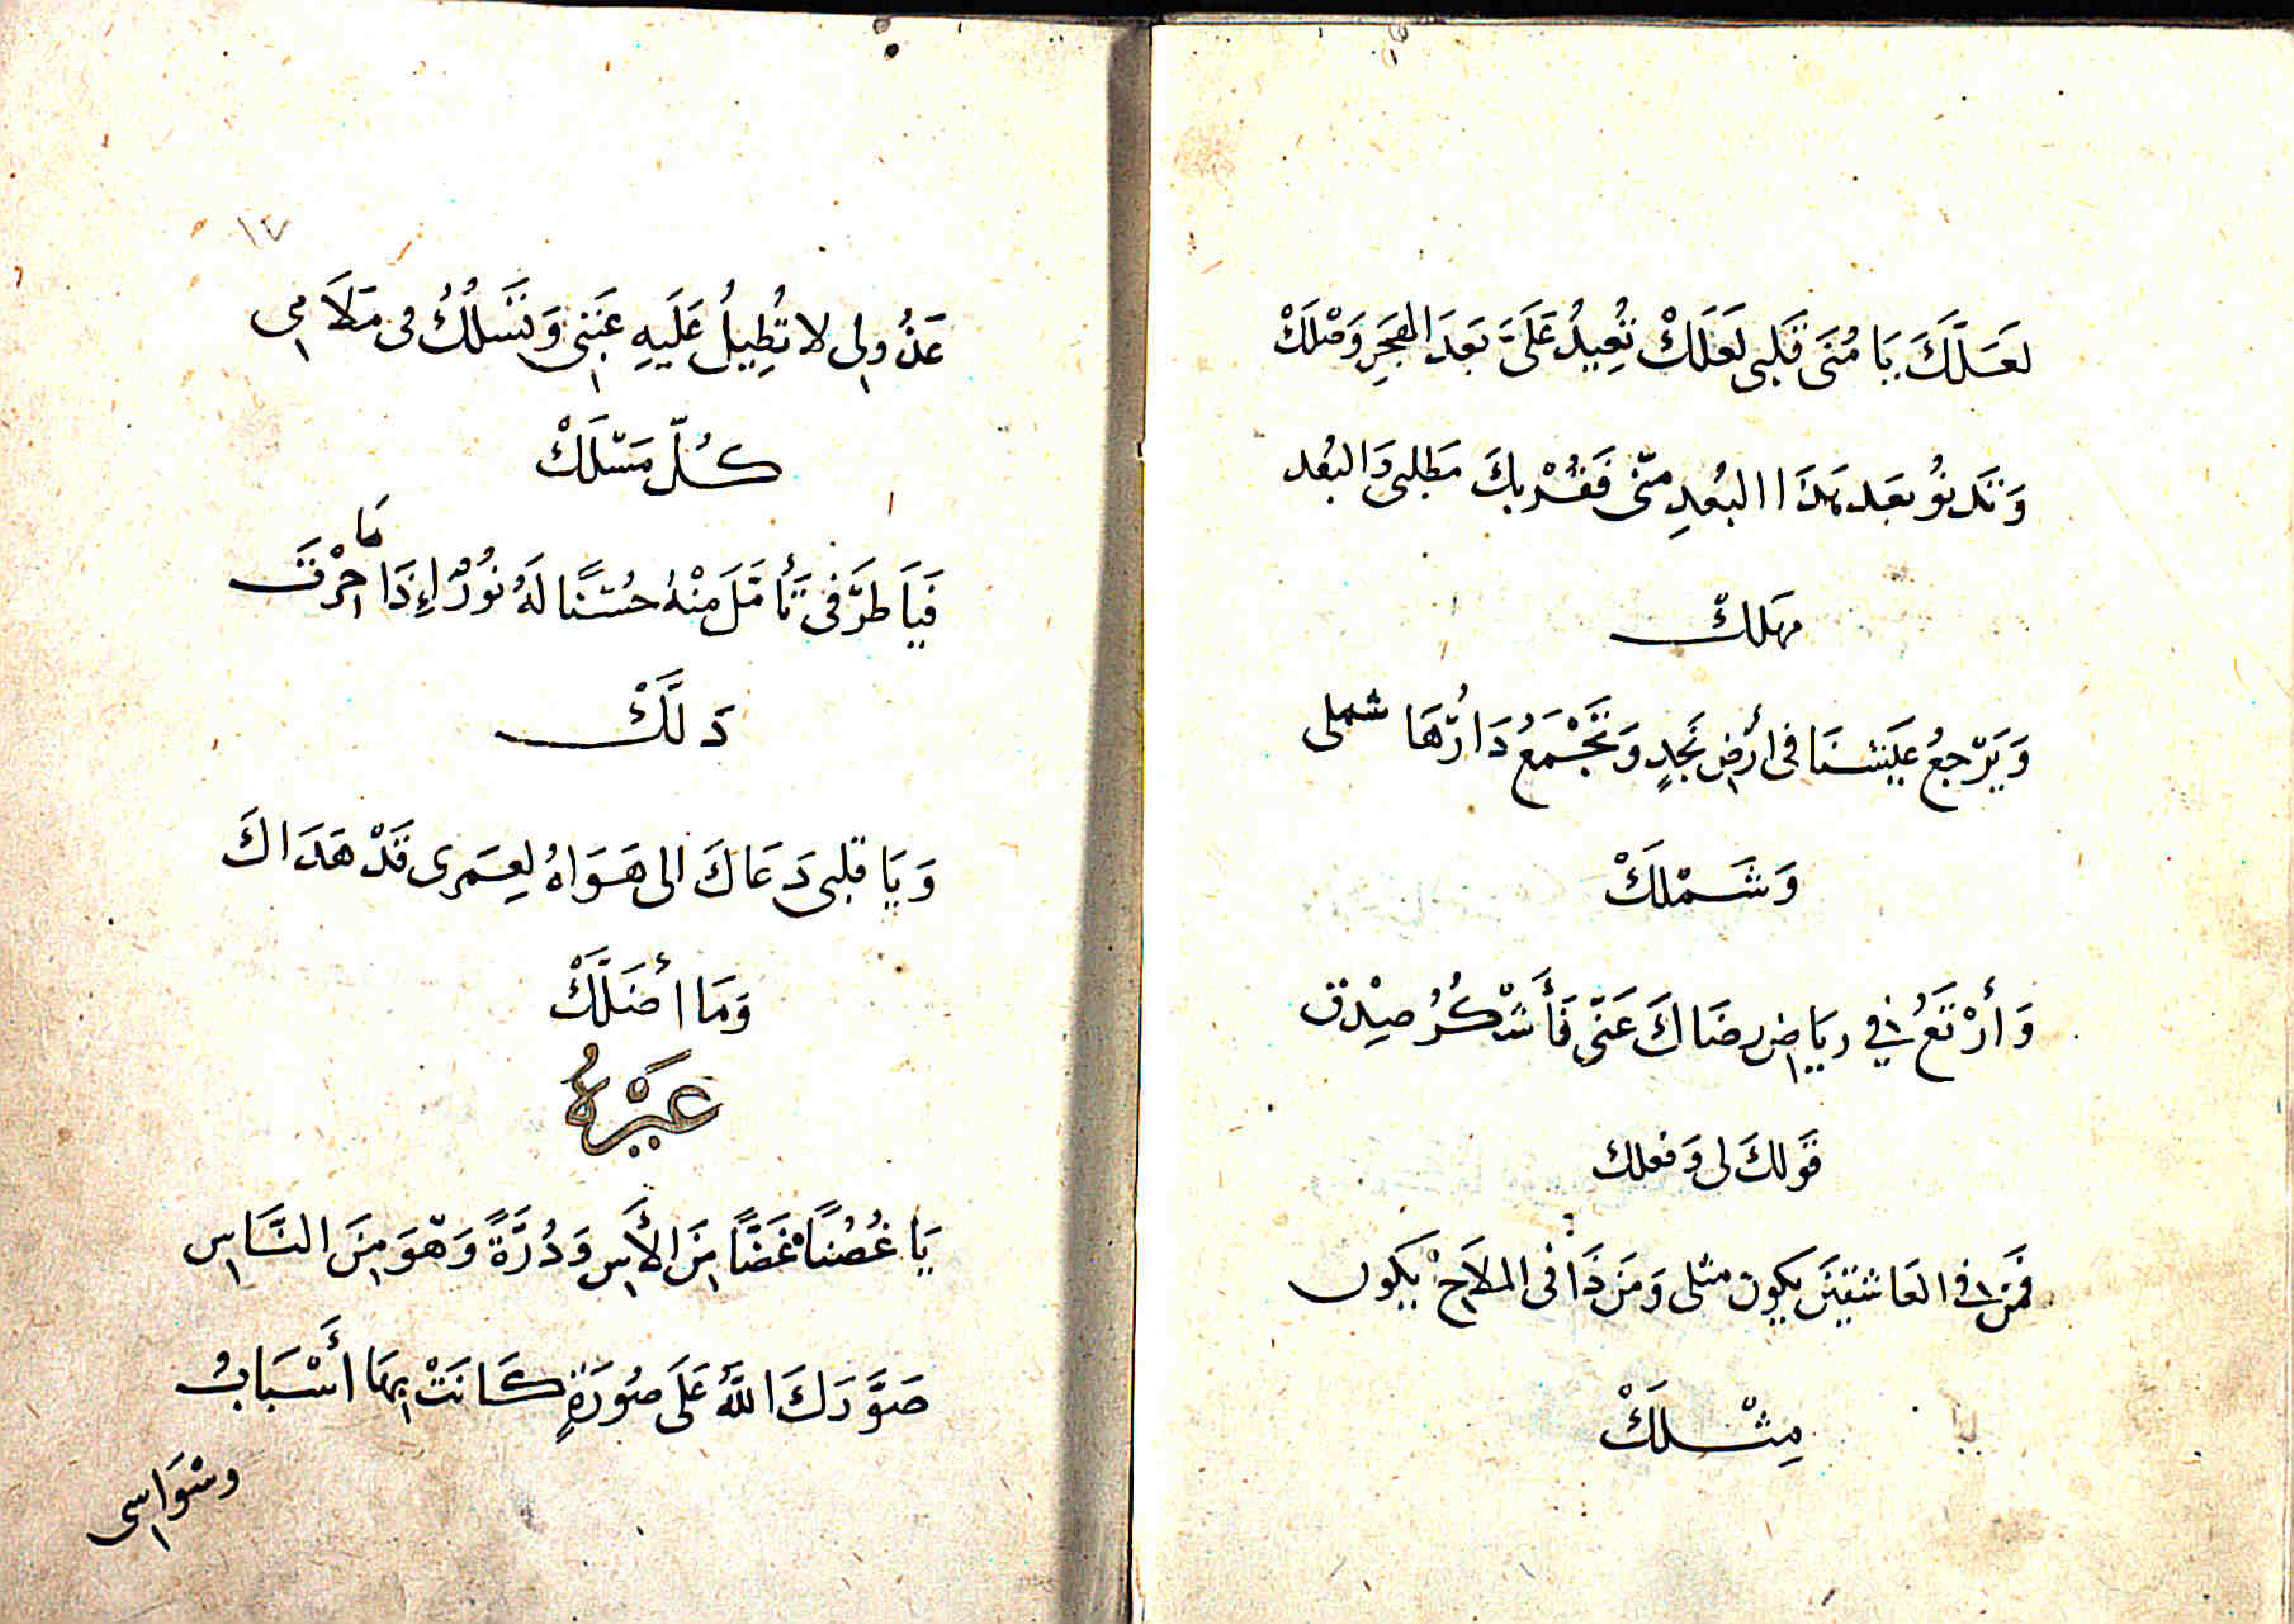 لَعَلَّكَ يَا مُنَى قَلبى لَعَلَكْ تُعِيدُ عَلَىَّ بَعدَ الهَجَرِ وَصْلَكْ
وَتَدنوُ بعَد هَذَا البُعدِ منّى فَقُرْبكَ مَطلبى وَالبُعد
مهَلكْ
وَيَرّجعُ عَيَشنَا فى أرْضِ نَجدٍ وَتجْمَعُ دَارُهَا شملى
وَشَمْلَكْ
وَأرْتَعُ فى ريَاضِ رضَاكَ عَنّى فَأَشْكُرُ صِدْق
قَولكَ لى وَفعلك
فمَن فى العَاشقيَن يكون مثلى وَمَن ذَا فى الملاَحِ يَكون
مِثْلَكْ
١٧
عَذُولى لا تُطِيلُ عَلَيهِ عَتبَى وَتَسلُكُ فى مَلاَمِى
كُلّ مَسْلَكْ
فَيَا طَرَّفى تَأَمَّلَ مِنْهُ حُسْنًا لَهُ نُورُ إِذَا مَا حِرْتَ
دَلَّكْ
وَيَا قلبى دَعَاكَ الى هَوَاهُ لعِمَرى قَدْ هَدَاكَ
وَمَا أضَلَّكْ
غَيْرُهُ
يَا غُصُنًا غَضًّا مِنَ الأَسِ وَدُرَّةً وَهْوَ مِنَ النَّاسِ
صَوَّرَكَ اللَّهُ عَلَى صُورَةٍ كَانَتْ بِهَا أَسْبَابُ
وسْوَاسِى